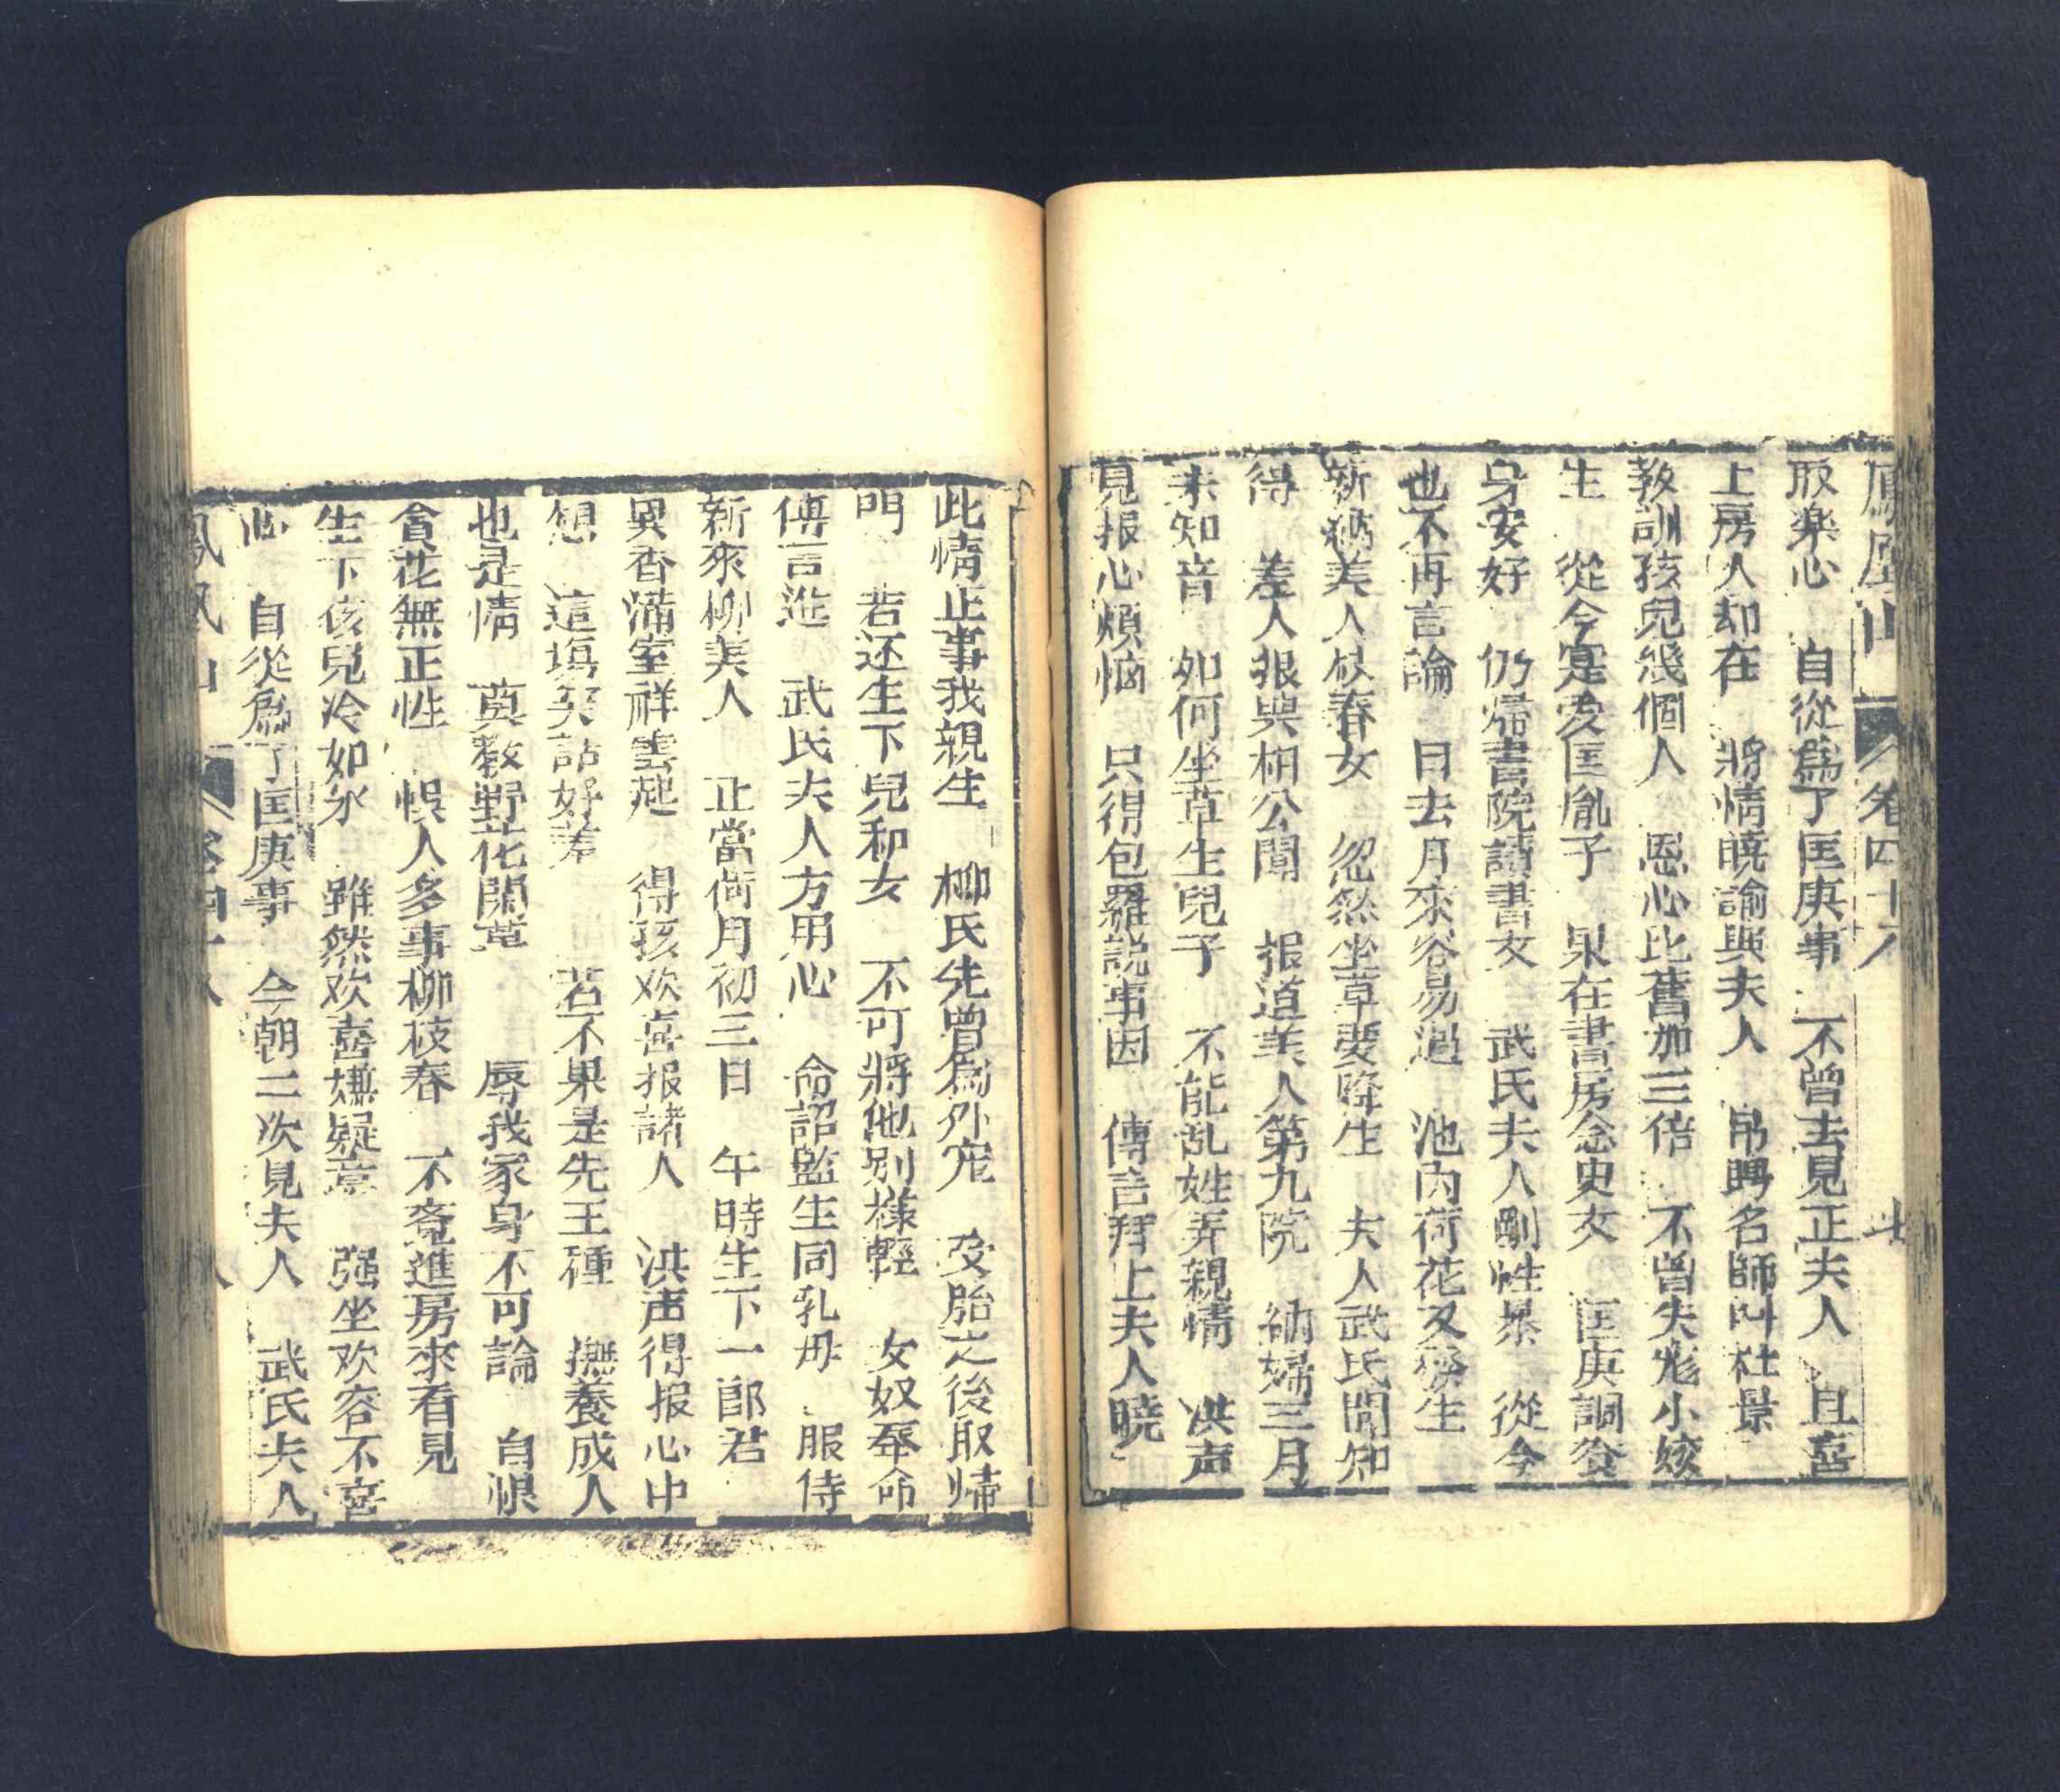 鳳凰山 卷四十八 七
取楽心 自從為了匡庚事 不曾去見正夫人 且喜
上房人却在 將情曉諭與夫人 帛聘名師叫杜景
教訓孩兒幾個人 恩心比舊加三倍 不曾失彪小姣
生 從今寔愛匡胤子 泉在書房念史文 匡庚調養
身安好 仍帰書院讀書文 武氏夫人剛性暴 從今
也不再言論 日去月來容易過 池内荷花又發生
新納美人枝春女 忽然坐草要降生 夫人武氏聞知
得 差人報與相公聞 报道美人第九院 納婦三月
未知音 如何坐草生兒子 不能乱姓弄親情 洪声
見报心煩惱 只得包羅説事因 傳言拜上夫人曉
此情正事我親生 柳氏先曾為外宠 受胎之後取帰
門 若还生下兒和女 不可將他別樣輕 女奴奉命
傳言進 武氏夫人方用心 命詔監生同乳母 服侍
新來柳美人 正當荷月初三日 午時生下一郎君
異香滿室祥雲起 得孩欢喜报諸人 洪声得报心中
想 這塡笑話好羞 若不果是先王種 撫養成人
也是情 莫教野花開 辱我家身不可論 自恨
貪花無正性 悞人多事柳枝春 不覚進房來看見
生下孩兒冷如氷 雖然欢喜嫌疑意 强坐欢容不喜
心 自從為了匡庚事 今朝二次見夫人 武氏夫人
鳳凰山 卷四十八 八